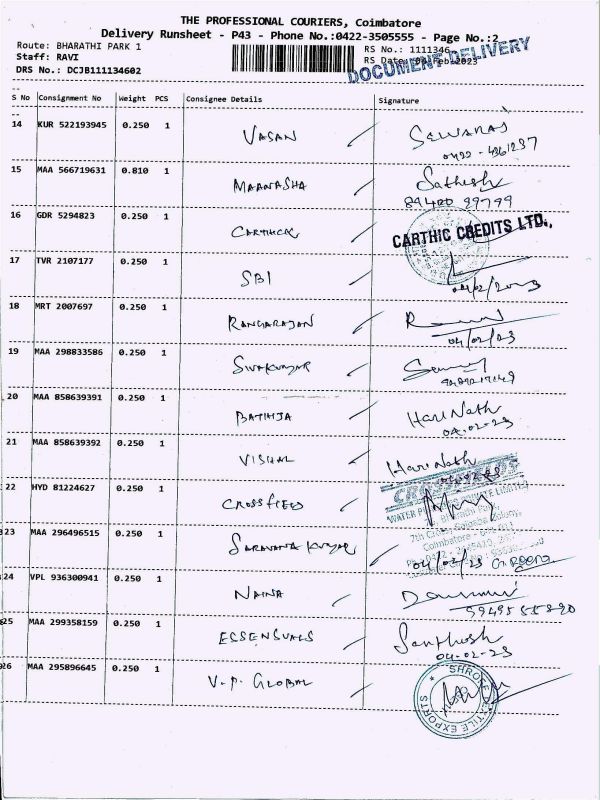 THE PROFESSIONAL COURIERS, Coimbatore
Delivery Runsheet - P43 - Phone No.:0422-3505555 - Page No.:2
Route: BHARATHI PARK 1
RS No.: 1111346
Staff: RAVI
RS Date: 04 Feb 2023
DOCUMENT DELIVERY
DRS No.: DCJB111134602
S No Consignment No Weight PCS Consignee Details Signature
14 KUR 522193945 0.250 1 VASAN SELVARAJ
0422 - 4361237
15 MAA 566719631 0.810 1 MAANASHA Sathish
89400 99799
16 GDR 5294823 0.250 1 CARTHICK
CARTHIC CREDITS LTD.,
17 TVR 2107177 0.250 1 SBI
04/2/2023
18 MRT 2007697 0.250 1 RANGARAJAN
04/02/23
19 MAA 298833586 0.250 1 SIVAKUMAR
20 MAA 858639391 0.250 1 BATHIJA Hari Nath
04.02.23
21 MAA 858639392 0.250 1 VISHAL Hari Nath
22 HYD 81224627 0.250 1 CROSSFIELD
CROSSFIELDS
WATER PURIFIERS PRIVATE LIMITED
7th Cross,
Coimbatore -
23 MAA 296496515 0.250 1 SARAVANA KUMAR
04/02/23 G. Reena
24 VPL 936300941 0.250 1 NAINA
25 MAA 299358159 0.250 1 ESSENSUALS Santhosh
04-02-23
26 MAA 295896645 0.250 1 V.P. GLOBAL
TEXTILE EXPORTS